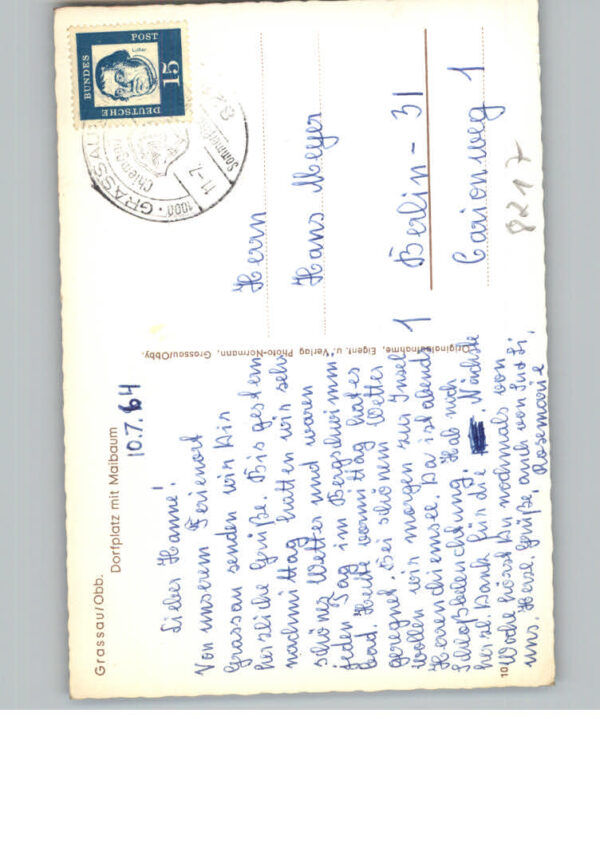 Grassau/Obb.
Dorfplatz mit Maibaum
10.7.64
Lieber Hanne!
Von unserem Ferienort
Grassau senden wir Dir
herzliche Grüße. Bis gestern
nachmittag hatten wir sehr
schönes Wetter und waren
jeden Tag im Bergschwimm
bad. Heute vormittag hat es
geregnet. Bei schönem Wetter
wollen wir morgen zur Insel
Herrenchiemsee. Da ist abends
Schloßbeleuchtung. Hab noch
herzl. Dank für die . Nächste
Woche hörst Du nochmals von
uns. Herzl. Grüße, auch von
Rosemarie
10
Originalaufnahme, Eigent. u. Verlag Photo-Normann, Grassau/Obby.
DEUTSCHE
BUNDES
POST
15
Luther
GRASSAU
Chiemgau
1000
11.-7.
Sommerfr
821
Herrn
Hans Meyer
1 Berlin - 31
Carionweg 1
8217